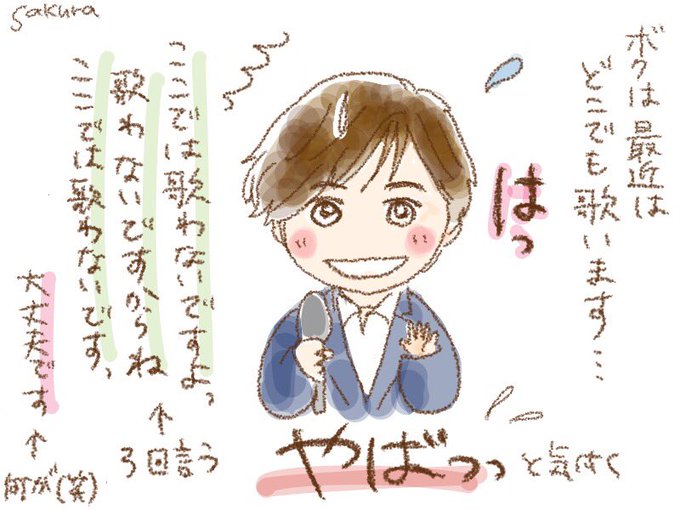 sakura
ボクは最近は
どこでも歌います…
はっ
やばっっ
と気付く
ここでは歌わないですよ。
歌わないですからね
ここでは歌わないです。
↑
3回言う
大丈夫です
↑
何が(笑)